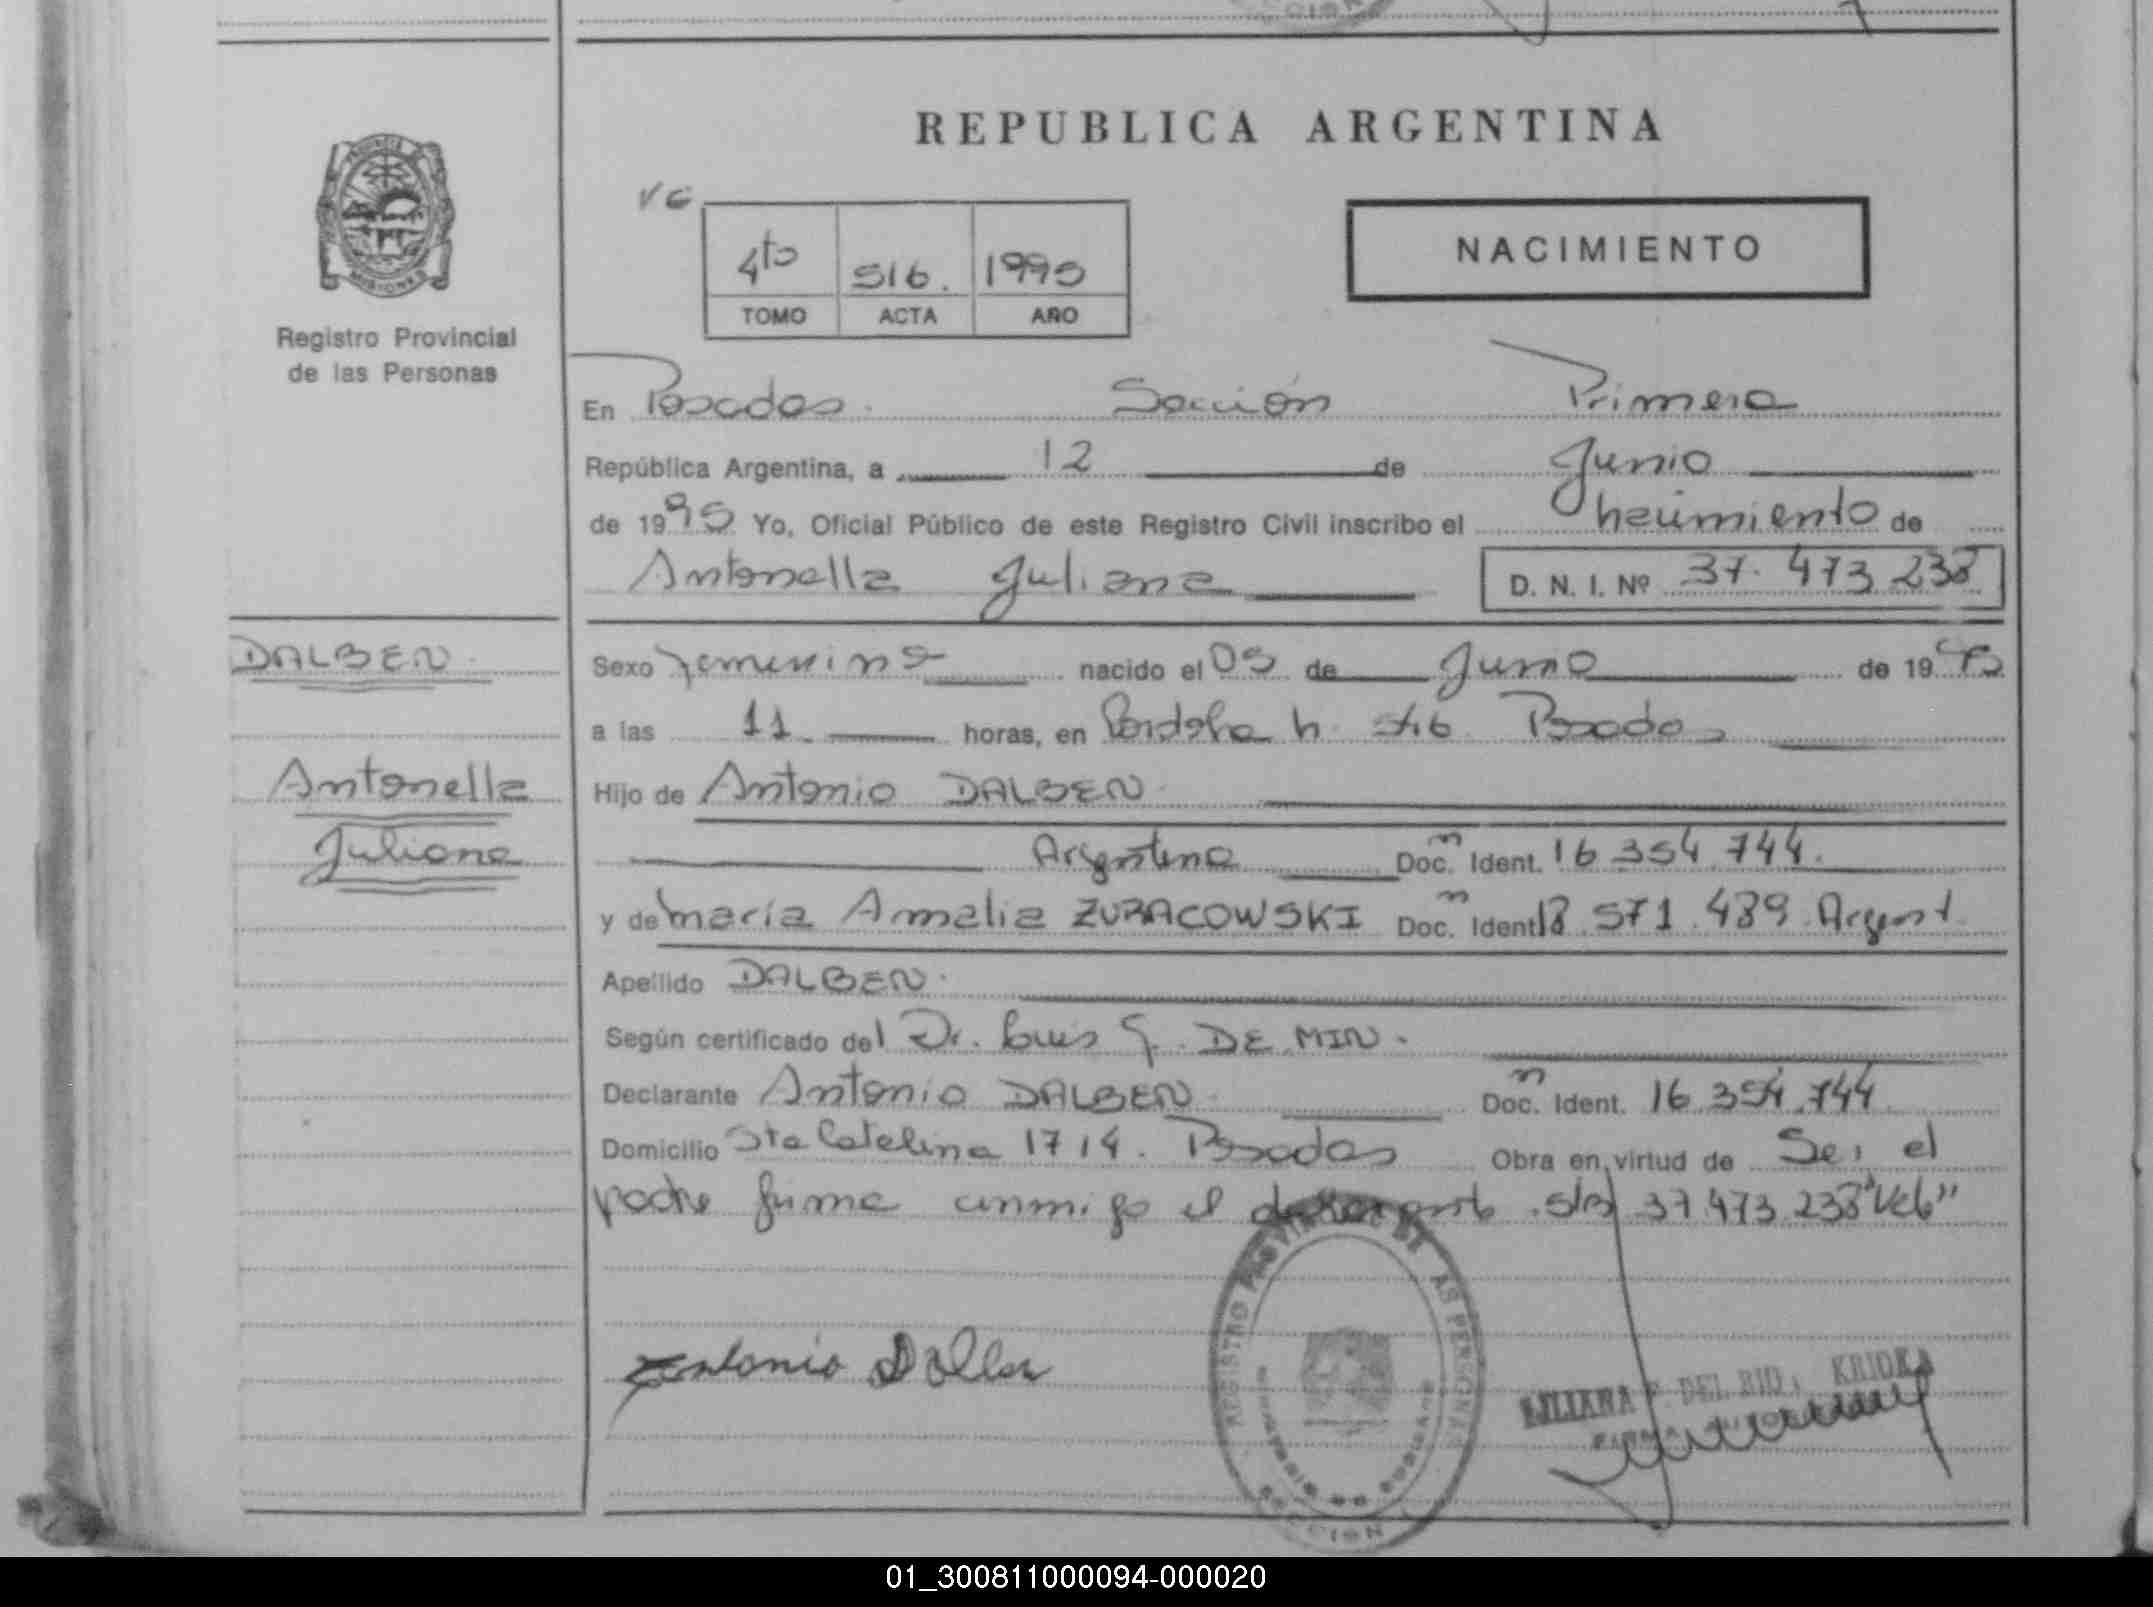 REPUBLICA ARGENTINA
NACIMIENTO
4to 516. 1995
TOMO ACTA AÑO
Registro Provincial
de las Personas
En Posadas. Sección Primera
República Argentina, a 12 de Junio
de 1995 Yo, Oficial Público de este Registro Civil inscribo el nacimiento de
Antonella Juliana D. N. I. Nº 37.473.238
DALBEN
Antonella
Juliana
Sexo femenino nacido el 05 de Junio de 1995
a las 11 horas, en Posadas
Hijo de Antonio DALBEN
Argentina Doc. Ident. 16.354.744.
y de maría Amelia ZURACOWSKI Doc. Ident 18.571.489. Argent.
Apellido DALBEN.
Según certificado del Dr. Luis G. DE MIN.
Declarante Antonio DALBEN Doc. Ident. 16.354.744
Domicilio Sta Catalina 1714. Posadas Obra en virtud de Ser el
padre firma conmigo el 37.473.238
REGISTRO PROVINCIAL DE LAS PERSONAS
SECCION
Antonio Dalben
LILIANA DEL RIO
01_300811000094-000020